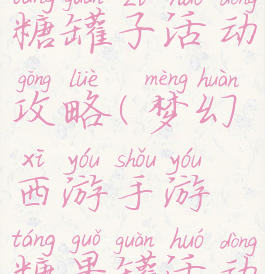 táng guàn zi huó dòng
糖罐子活动
gōng lüè mèng huàn
攻略(梦幻
xī yóu shǒu yóu
西游手游
táng guǒ guàn huó dòng
糖果罐活动